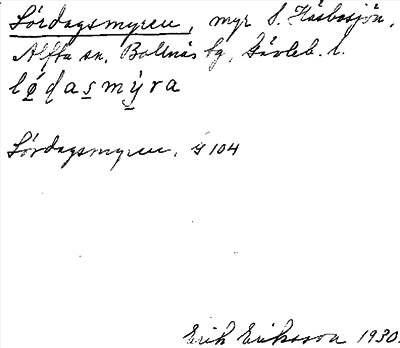 Lördagsmyren, myr S. Håsbosjön,
Alfta sn, Bollnäs tg, Gävleb. l.
lǿdasmýra
Lördagsmyren, G 104
Erik Eriksson 1930.